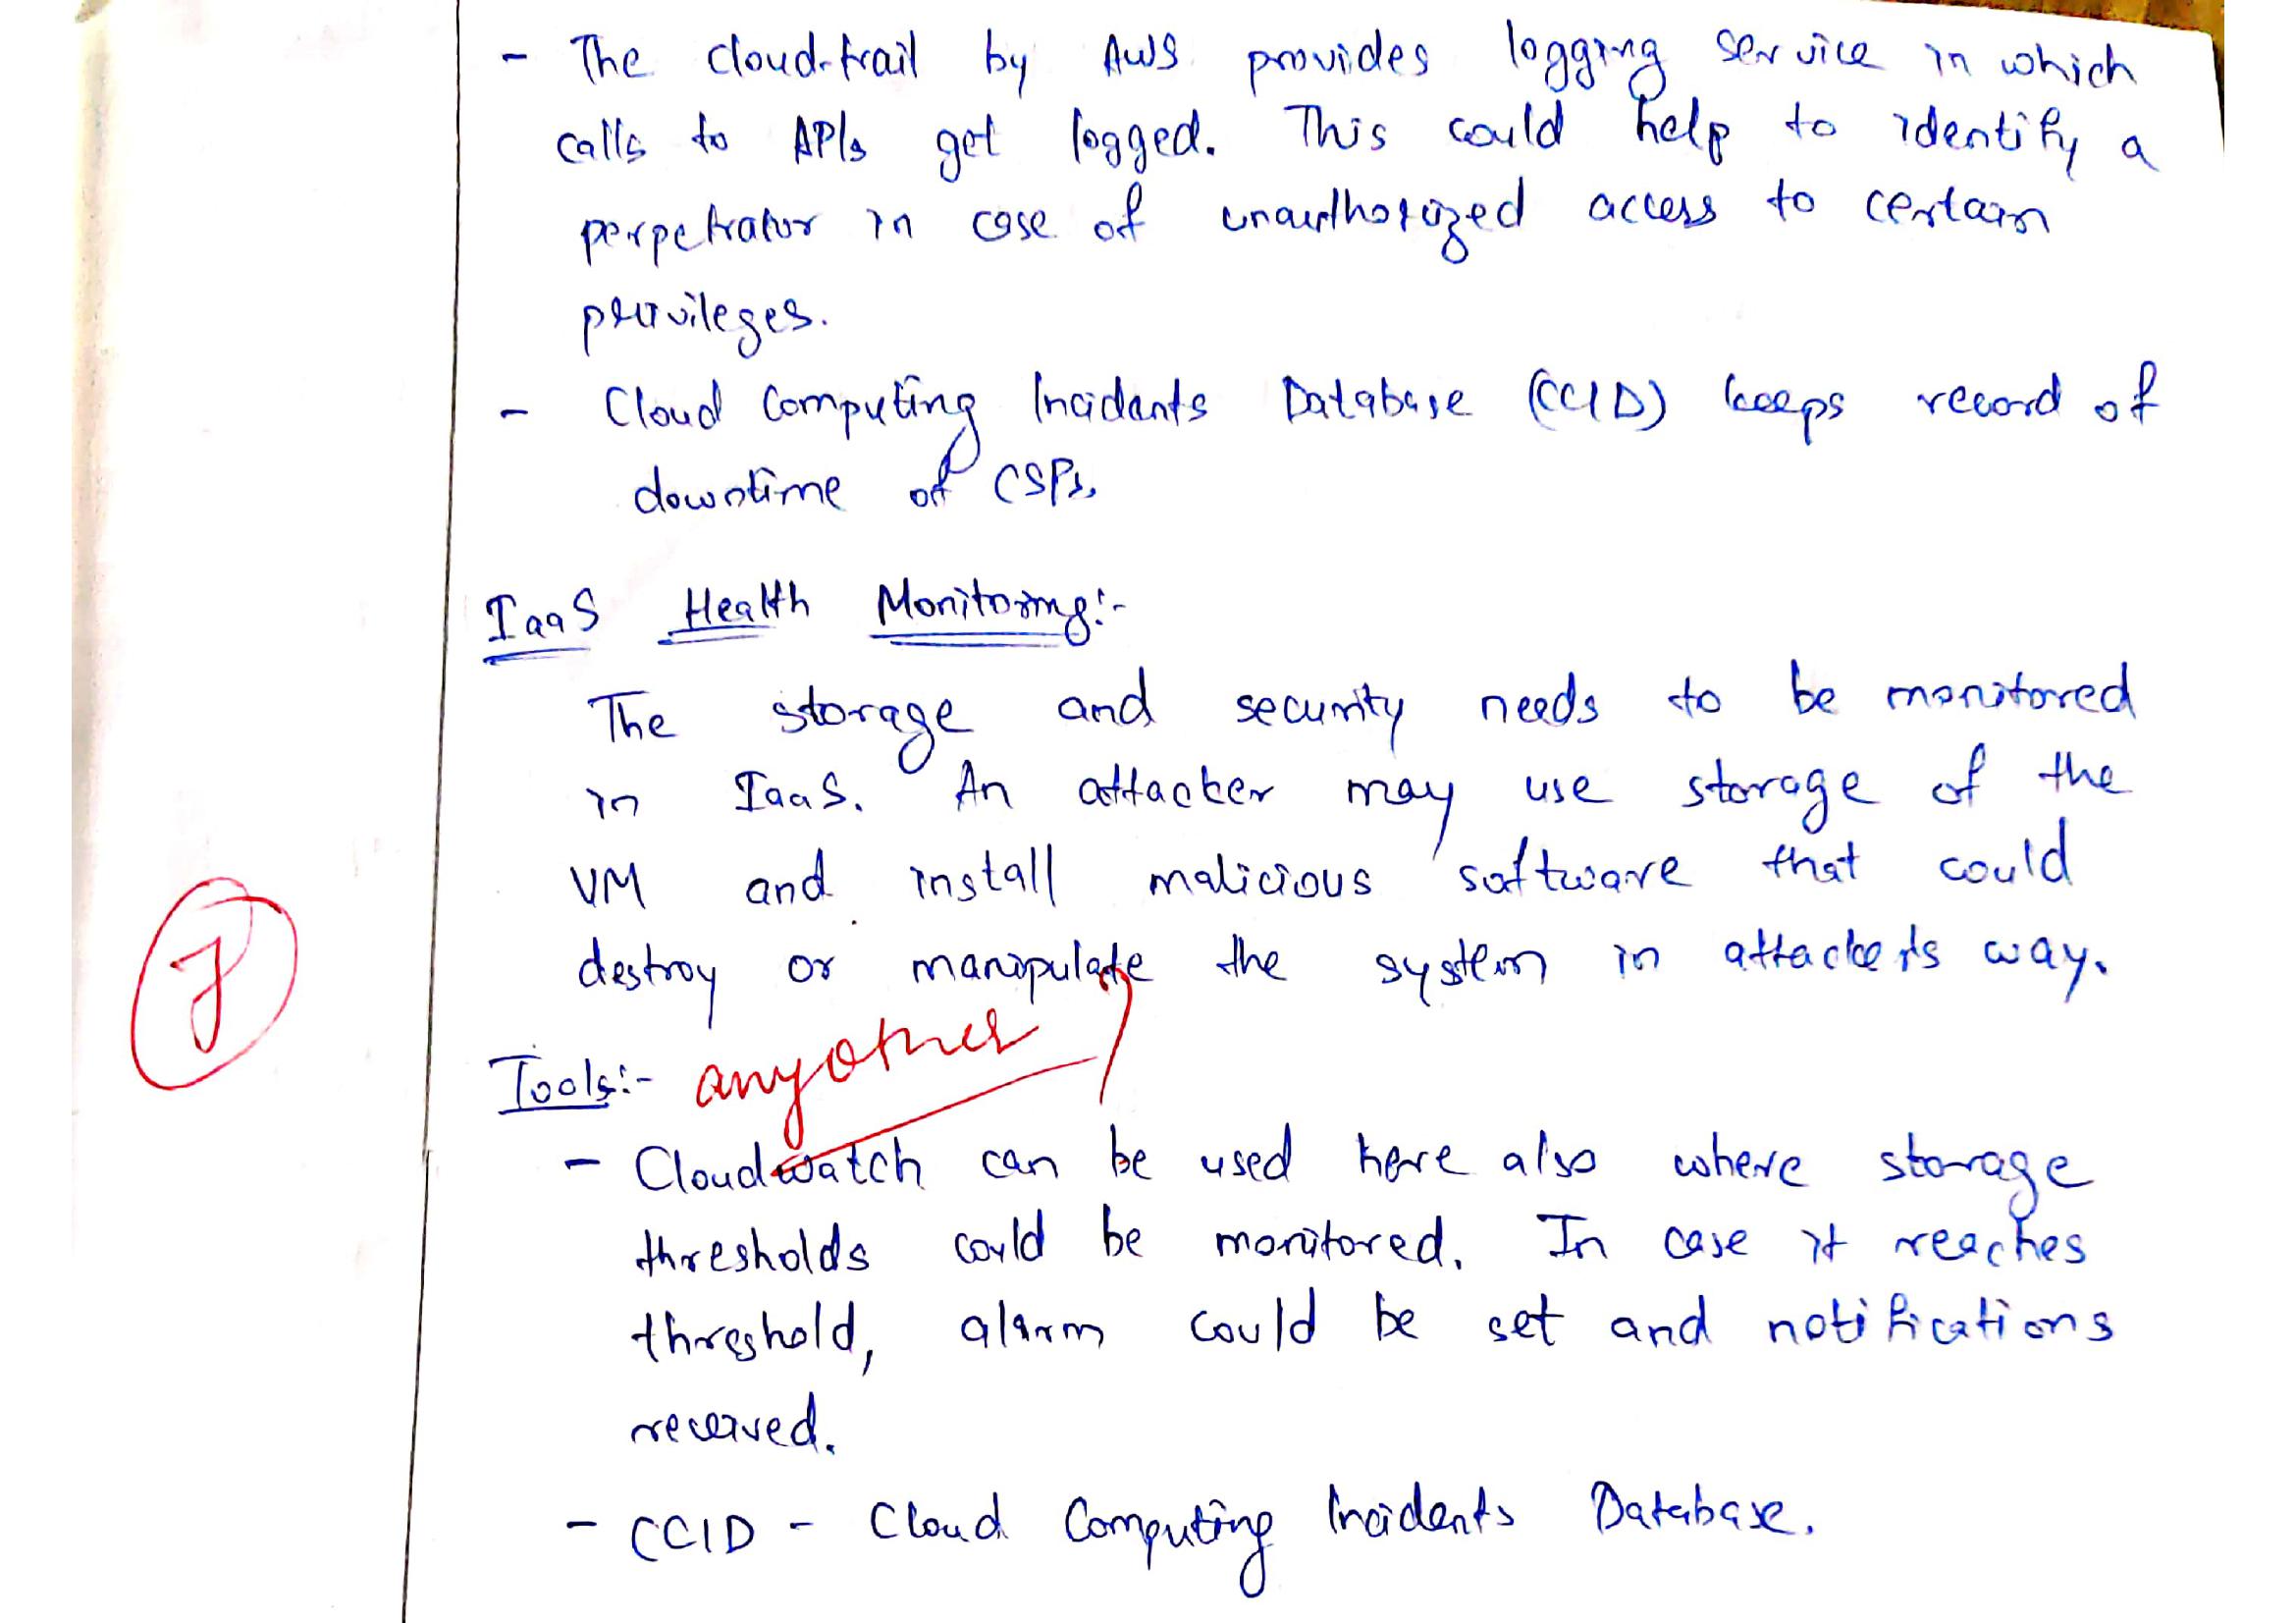 - The cloud-trail by AWS provides logging service in which
calls to APIs get logged. This could help to identify a
perpetrator in case of unauthorized access to certain
privileges.
- Cloud Computing Incidents Database (CCID) keeps record of
downtime of CSPs.
IaaS Health Monitoring:-
The storage and security needs to be monitored
in IaaS. An attacker may use storage of the
VM and install malicious software that could
destroy or manipulate the system in attackers way.
Tools:- any other
- Cloudwatch can be used here also where storage
thresholds could be monitored. In case it reaches
threshold, alarm could be set and notifications
received.
- CCID - Cloud Computing Incidents Database.